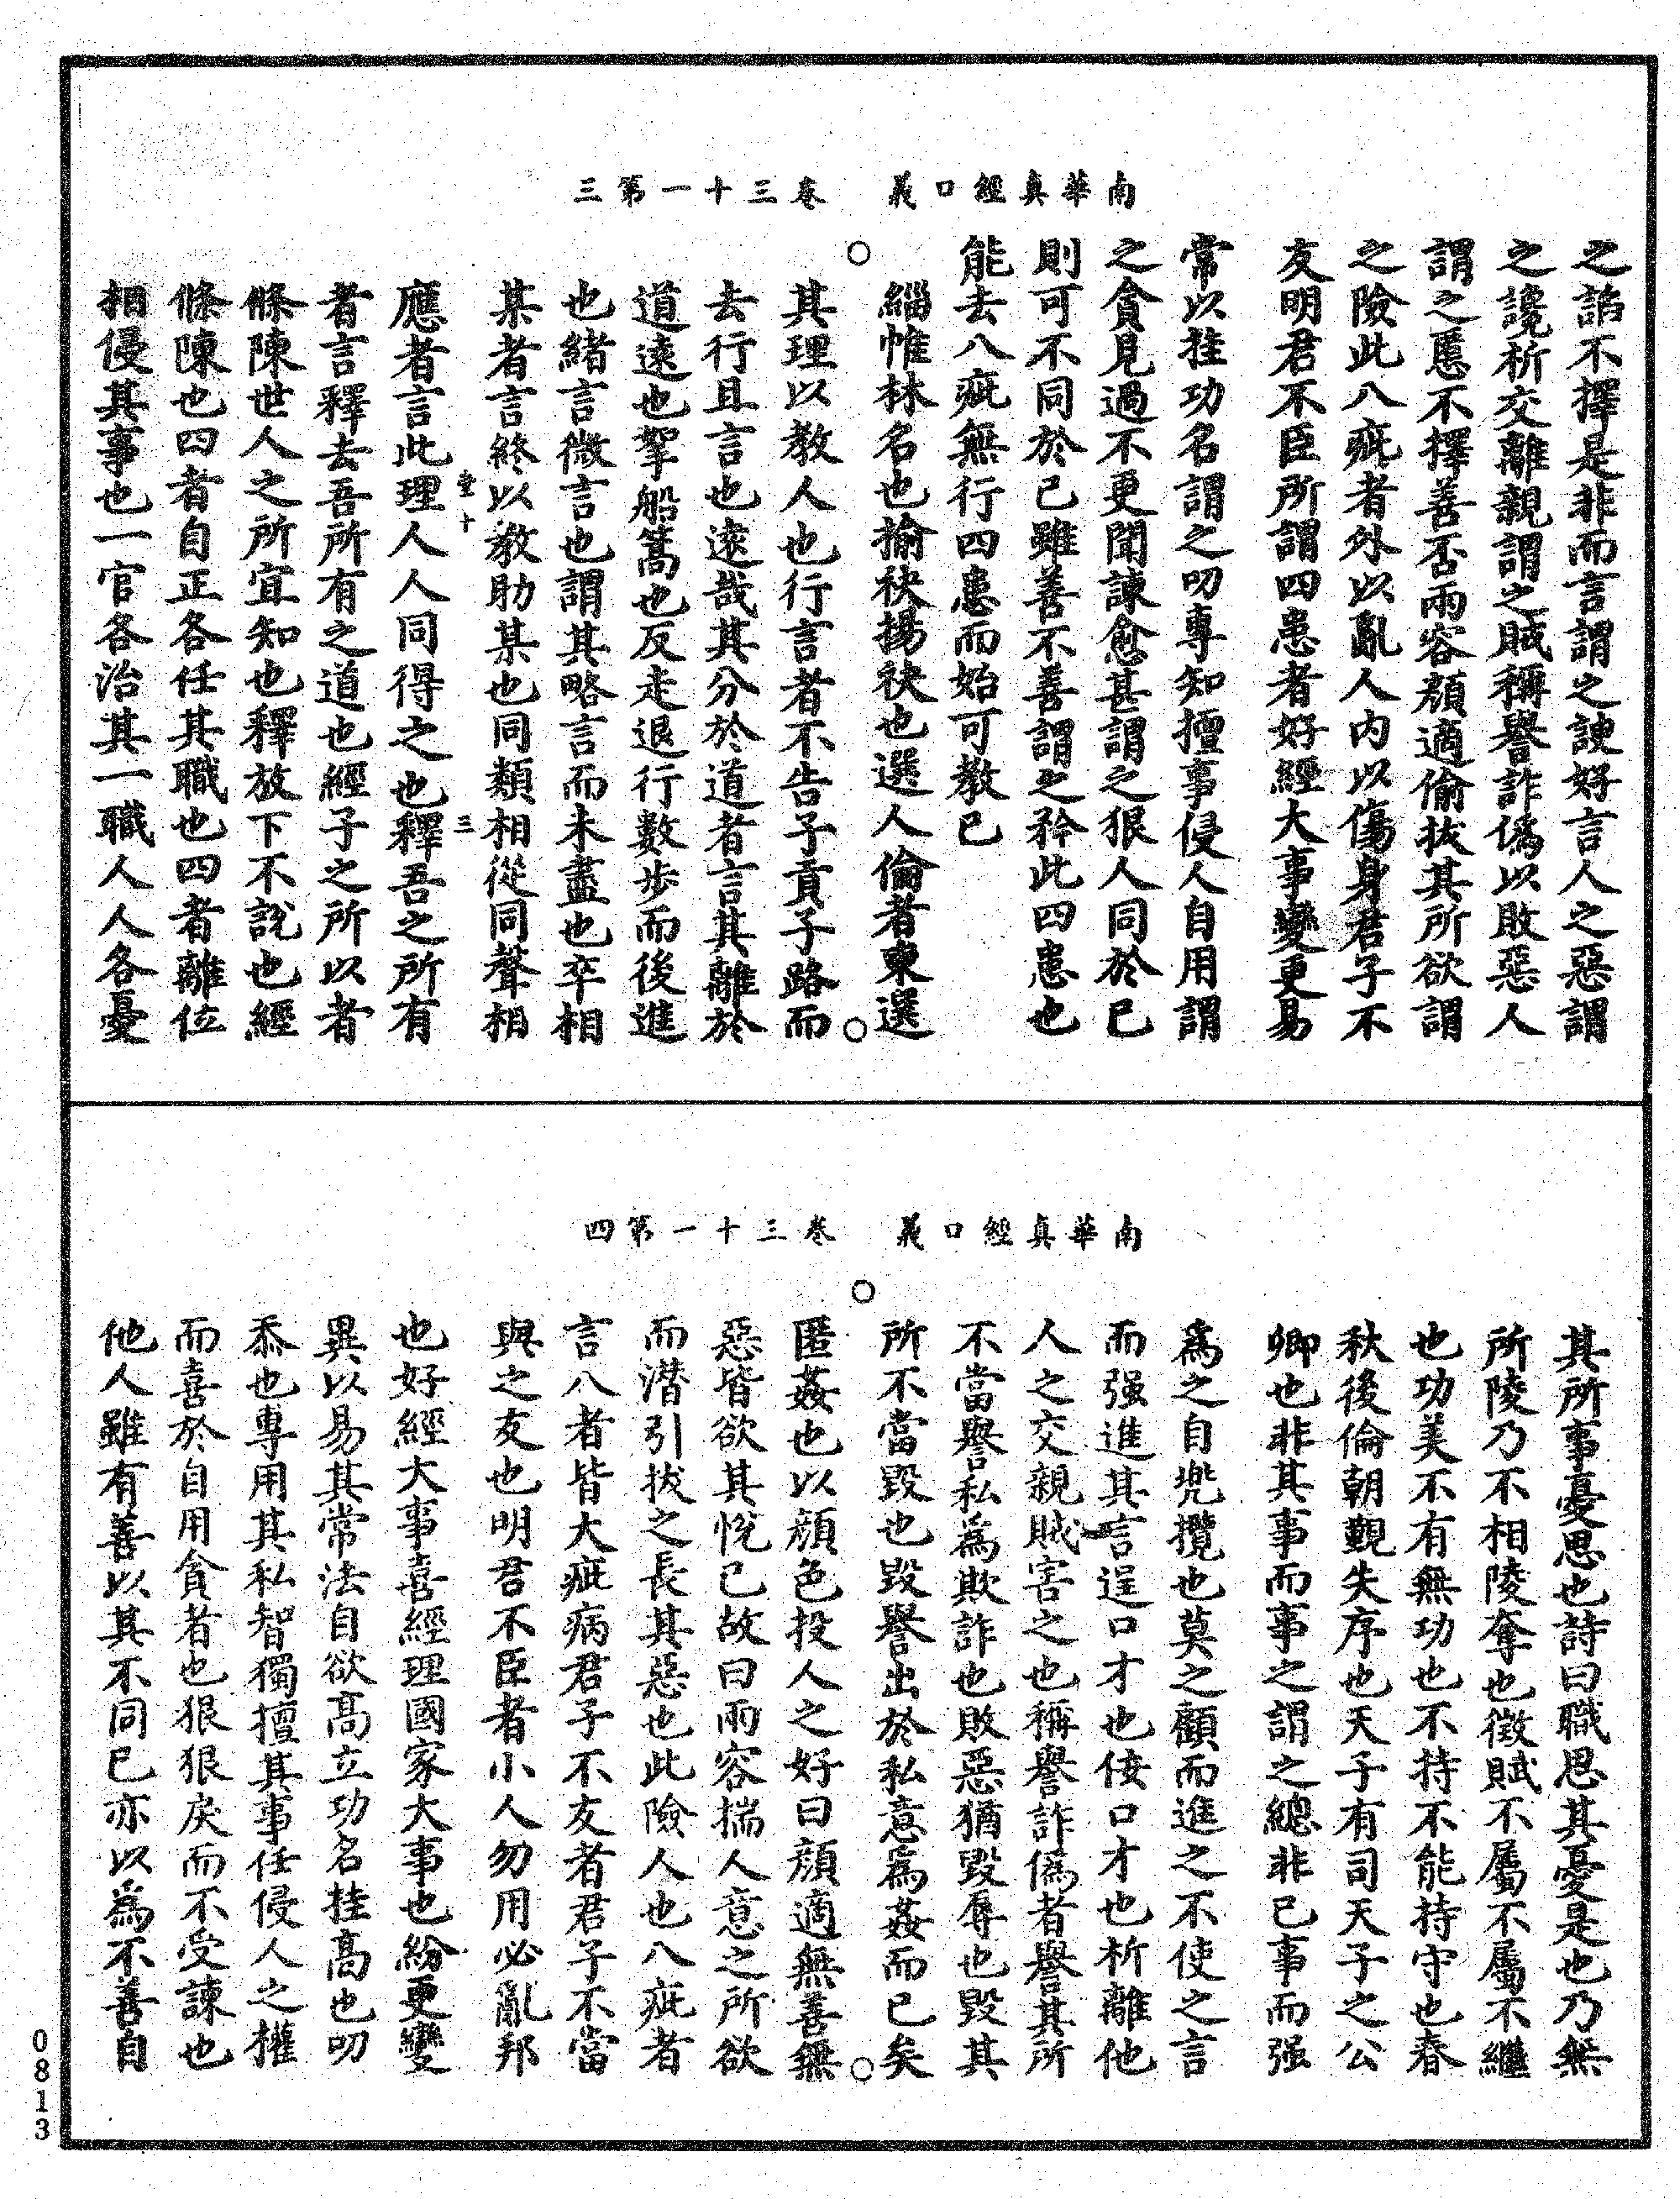 南華真經口義　卷三十一第三
之諂不擇是非而言謂之諛好言人之惡謂
之讒析交離親謂之賊稱譽詐偽以敗惡人
謂之慝不擇善否兩容顏適偷拔其所欲謂
之險此八疵者外以亂人內以傷身君子不
友明君不臣所謂四患者好經大事變更易
常以挂功名謂之叨專知擅事侵人自用謂
之貪見過不更聞諫愈甚謂之狠人同於己
則可不同於己雖善不善謂之矜此四患也
能去八疵無行四患而始可教已
緇帷林名也揄袂揚袂也選人倫者柬選
其理以教人也行言者不告子貢子路而
去行且言也遠哉其分於道者言其離於
道遠也挐船篙也反走退行數步而後進
也緒言微言也謂其略言而未盡也卒相
某者言終以教助某也同類相從同聲相
應者言此理人人同得之也釋吾之所有
者言釋去吾所有之道也經子之所以者
條陳世人之所宜知也釋放下不說也經
條陳也四者自正各任其職也四者離位
相侵其事也一官各治其一職人人各憂
南華真經口義　卷三十一第四
其所事憂思也詩曰職思其憂是也乃無
所陵乃不相陵奪也徵賦不屬不屬不繼
也功美不有無功也不持不能持守也春
秋後倫朝覲失序也天子有司天子之公
卿也非其事而事之謂之總非己事而强
為之自兜攬也莫之顧而進之不使之言
而强進其言逞口才也佞口才也析離他
人之交親賊害之也稱譽詐偽者譽其所
不當譽私為欺詐也敗惡猶毀辱也毀其
所不當毀也毀譽出於私意為姦而已矣
匿姦也以顏色投人之好曰顏適無善無
惡皆欲其悅己故曰兩容揣人意之所欲
而潛引拔之長其惡也此險人也八疵者
言八者皆大疵病君子不友者君子不當
與之友也明君不臣者小人勿用必亂邦
也好經大事喜經理國家大事也紛更變
異以易其常法自欲高立功名挂高也叨
忝也專用其私智獨擅其事任侵人之權
而喜於自用貪者也狠狠戾而不受諫也
他人雖有善以其不同己亦以為不善自
0813